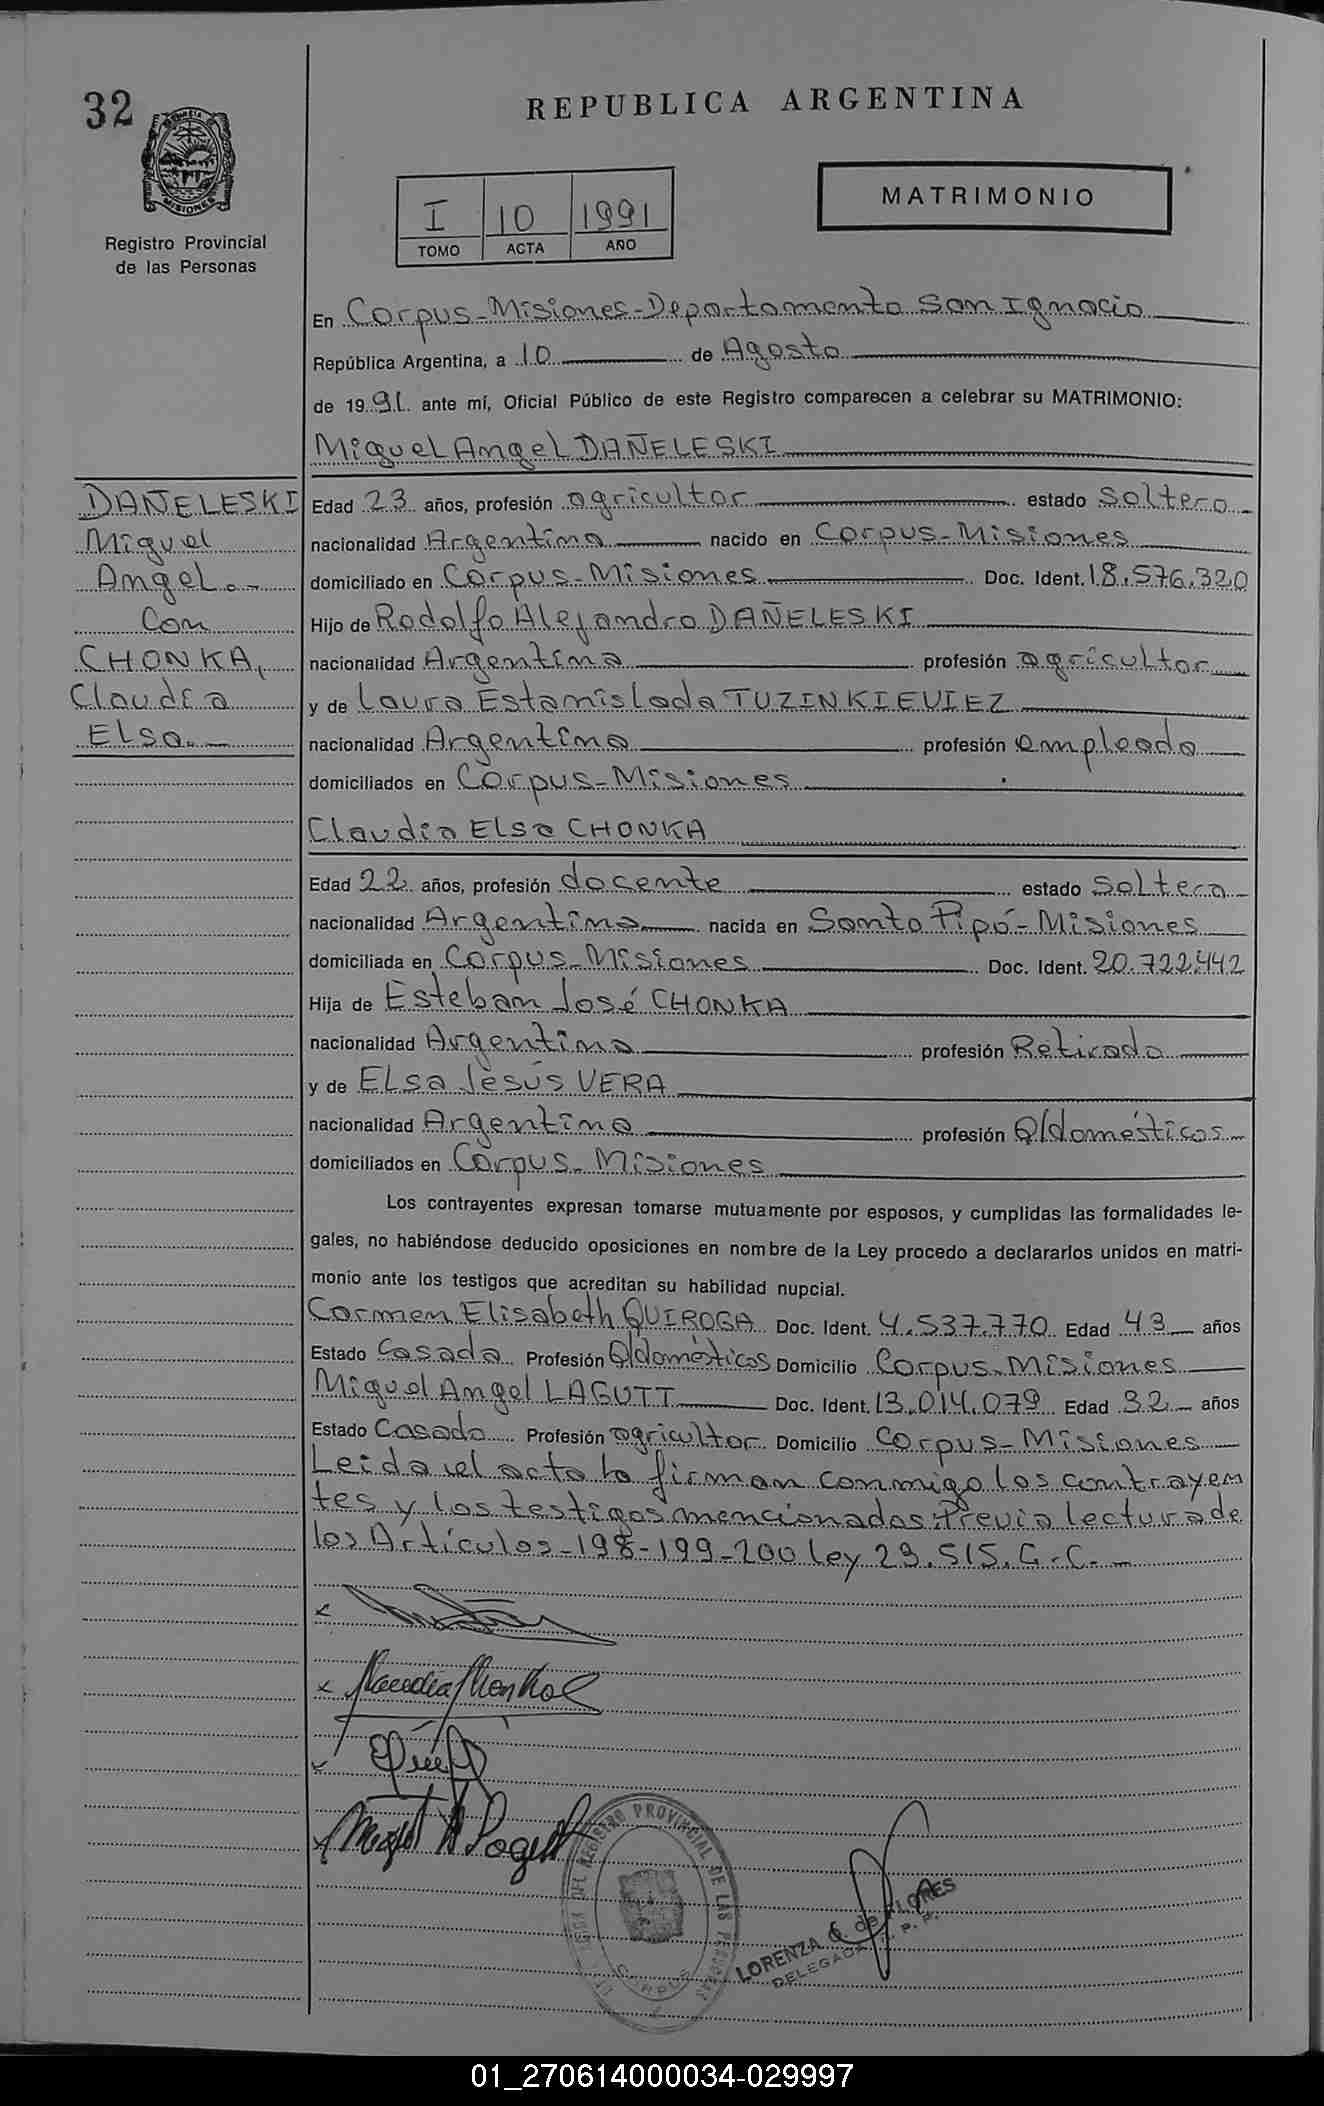 32
REPUBLICA ARGENTINA
MISIONES
Registro Provincial
de las Personas
I 10 1991
TOMO ACTA AÑO
MATRIMONIO
En Corpus-Misiones-Departamento San Ignacio
República Argentina, a 10 de Agosto
de 1991 ante mí, Oficial Público de este Registro comparecen a celebrar su MATRIMONIO:
Miguel Angel DAÑELESKI
DAÑELESKI
Miguel
Angel.-
Con
CHONKA,
Claudia
Elsa.-
Edad 23 años, profesión agricultor estado Soltero
nacionalidad Argentina nacido en Corpus-Misiones
domiciliado en Corpus-Misiones Doc. Ident. 18.576.320
Hijo de Rodolfo Alejandro DAÑELESKI
nacionalidad Argentina profesión agricultor
y de Laura Estanislada TUZINKIEVIEZ
nacionalidad Argentina profesión empleada
domiciliados en Corpus-Misiones
Claudia Elsa CHONKA
Edad 22 años, profesión docente estado Soltera
nacionalidad Argentina nacida en Santo Pipó-Misiones
domiciliada en Corpus-Misiones Doc. Ident. 20.722.442
Hija de Esteban José CHONKA
nacionalidad Argentina profesión Retirado
y de Elsa Jesús VERA
nacionalidad Argentina profesión Q/domésticos
domiciliados en Corpus-Misiones
Los contrayentes expresan tomarse mutuamente por esposos, y cumplidas las formalidades le-
gales, no habiéndose deducido oposiciones en nombre de la Ley procedo a declararlos unidos en matri-
monio ante los testigos que acreditan su habilidad nupcial.
Carmen Elisabeth QUIROGA Doc. Ident. 4.537.770 Edad 43 años
Estado Casada Profesión Q/domésticos Domicilio Corpus-Misiones
Miguel Angel LAGUTT Doc. Ident. 13.014.079 Edad 32 años
Estado Casado Profesión agricultor Domicilio Corpus-Misiones
Leida el acta la firman conmigo los contrayen
tes y los testigos mencionados Previa lectura de
los Artículos-198-199-200 ley 23.515.C.C.-
Claudia Chonka
REGISTRO PROVINCIAL DE LAS PERSONAS
CORPUS
LORENZA Q. de FLORES
DELEGADA R. P. P.
01_270614000034-029997